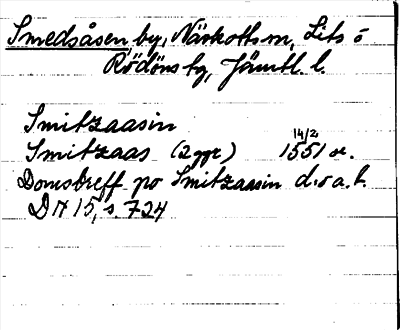 Smedsåsen by, Näskotts sn, Lits o
Rödöns tg, Jämtl. l.
Smitzaasin
Smitzaas (2 ggr) 14/2 1551 or.
Domsbreff po Smitzaasin d. o a. t.
DN 15, s. 724